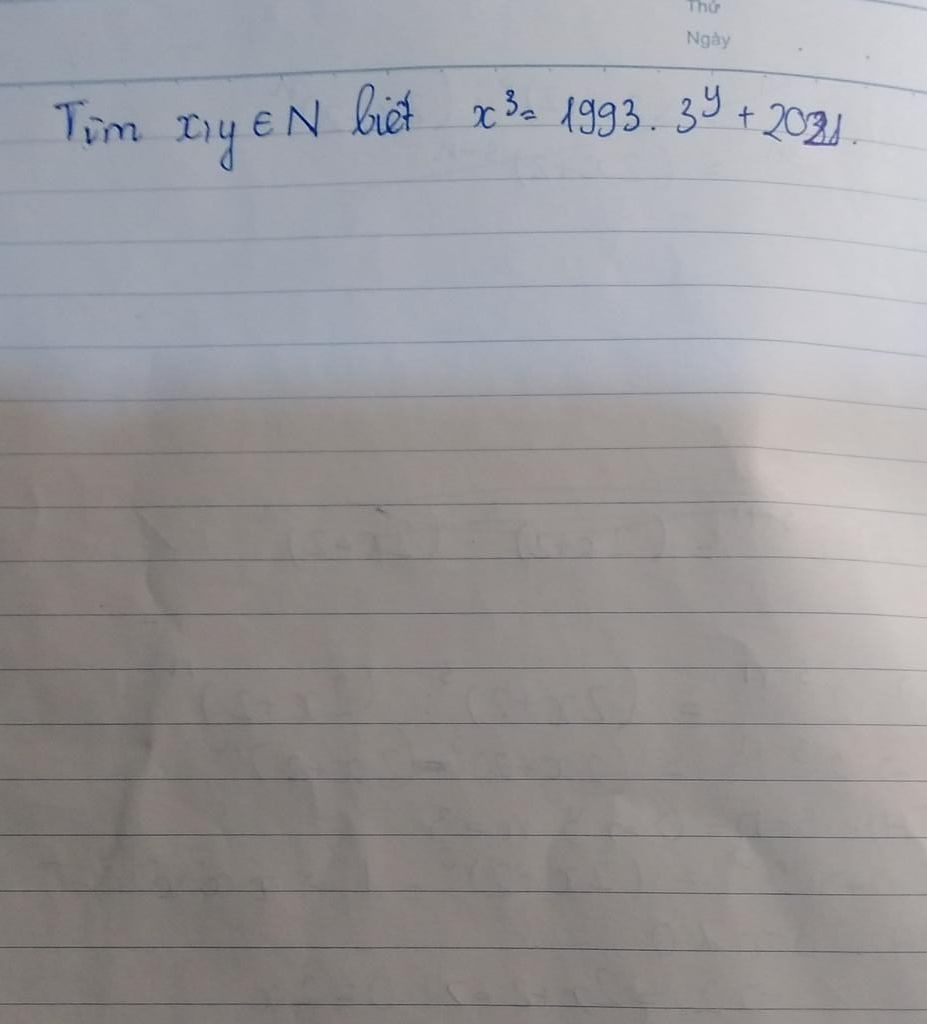 Thứ
Ngày
Tìm x,y ∈ N biết x³ = 1993. 3^y + 2021.